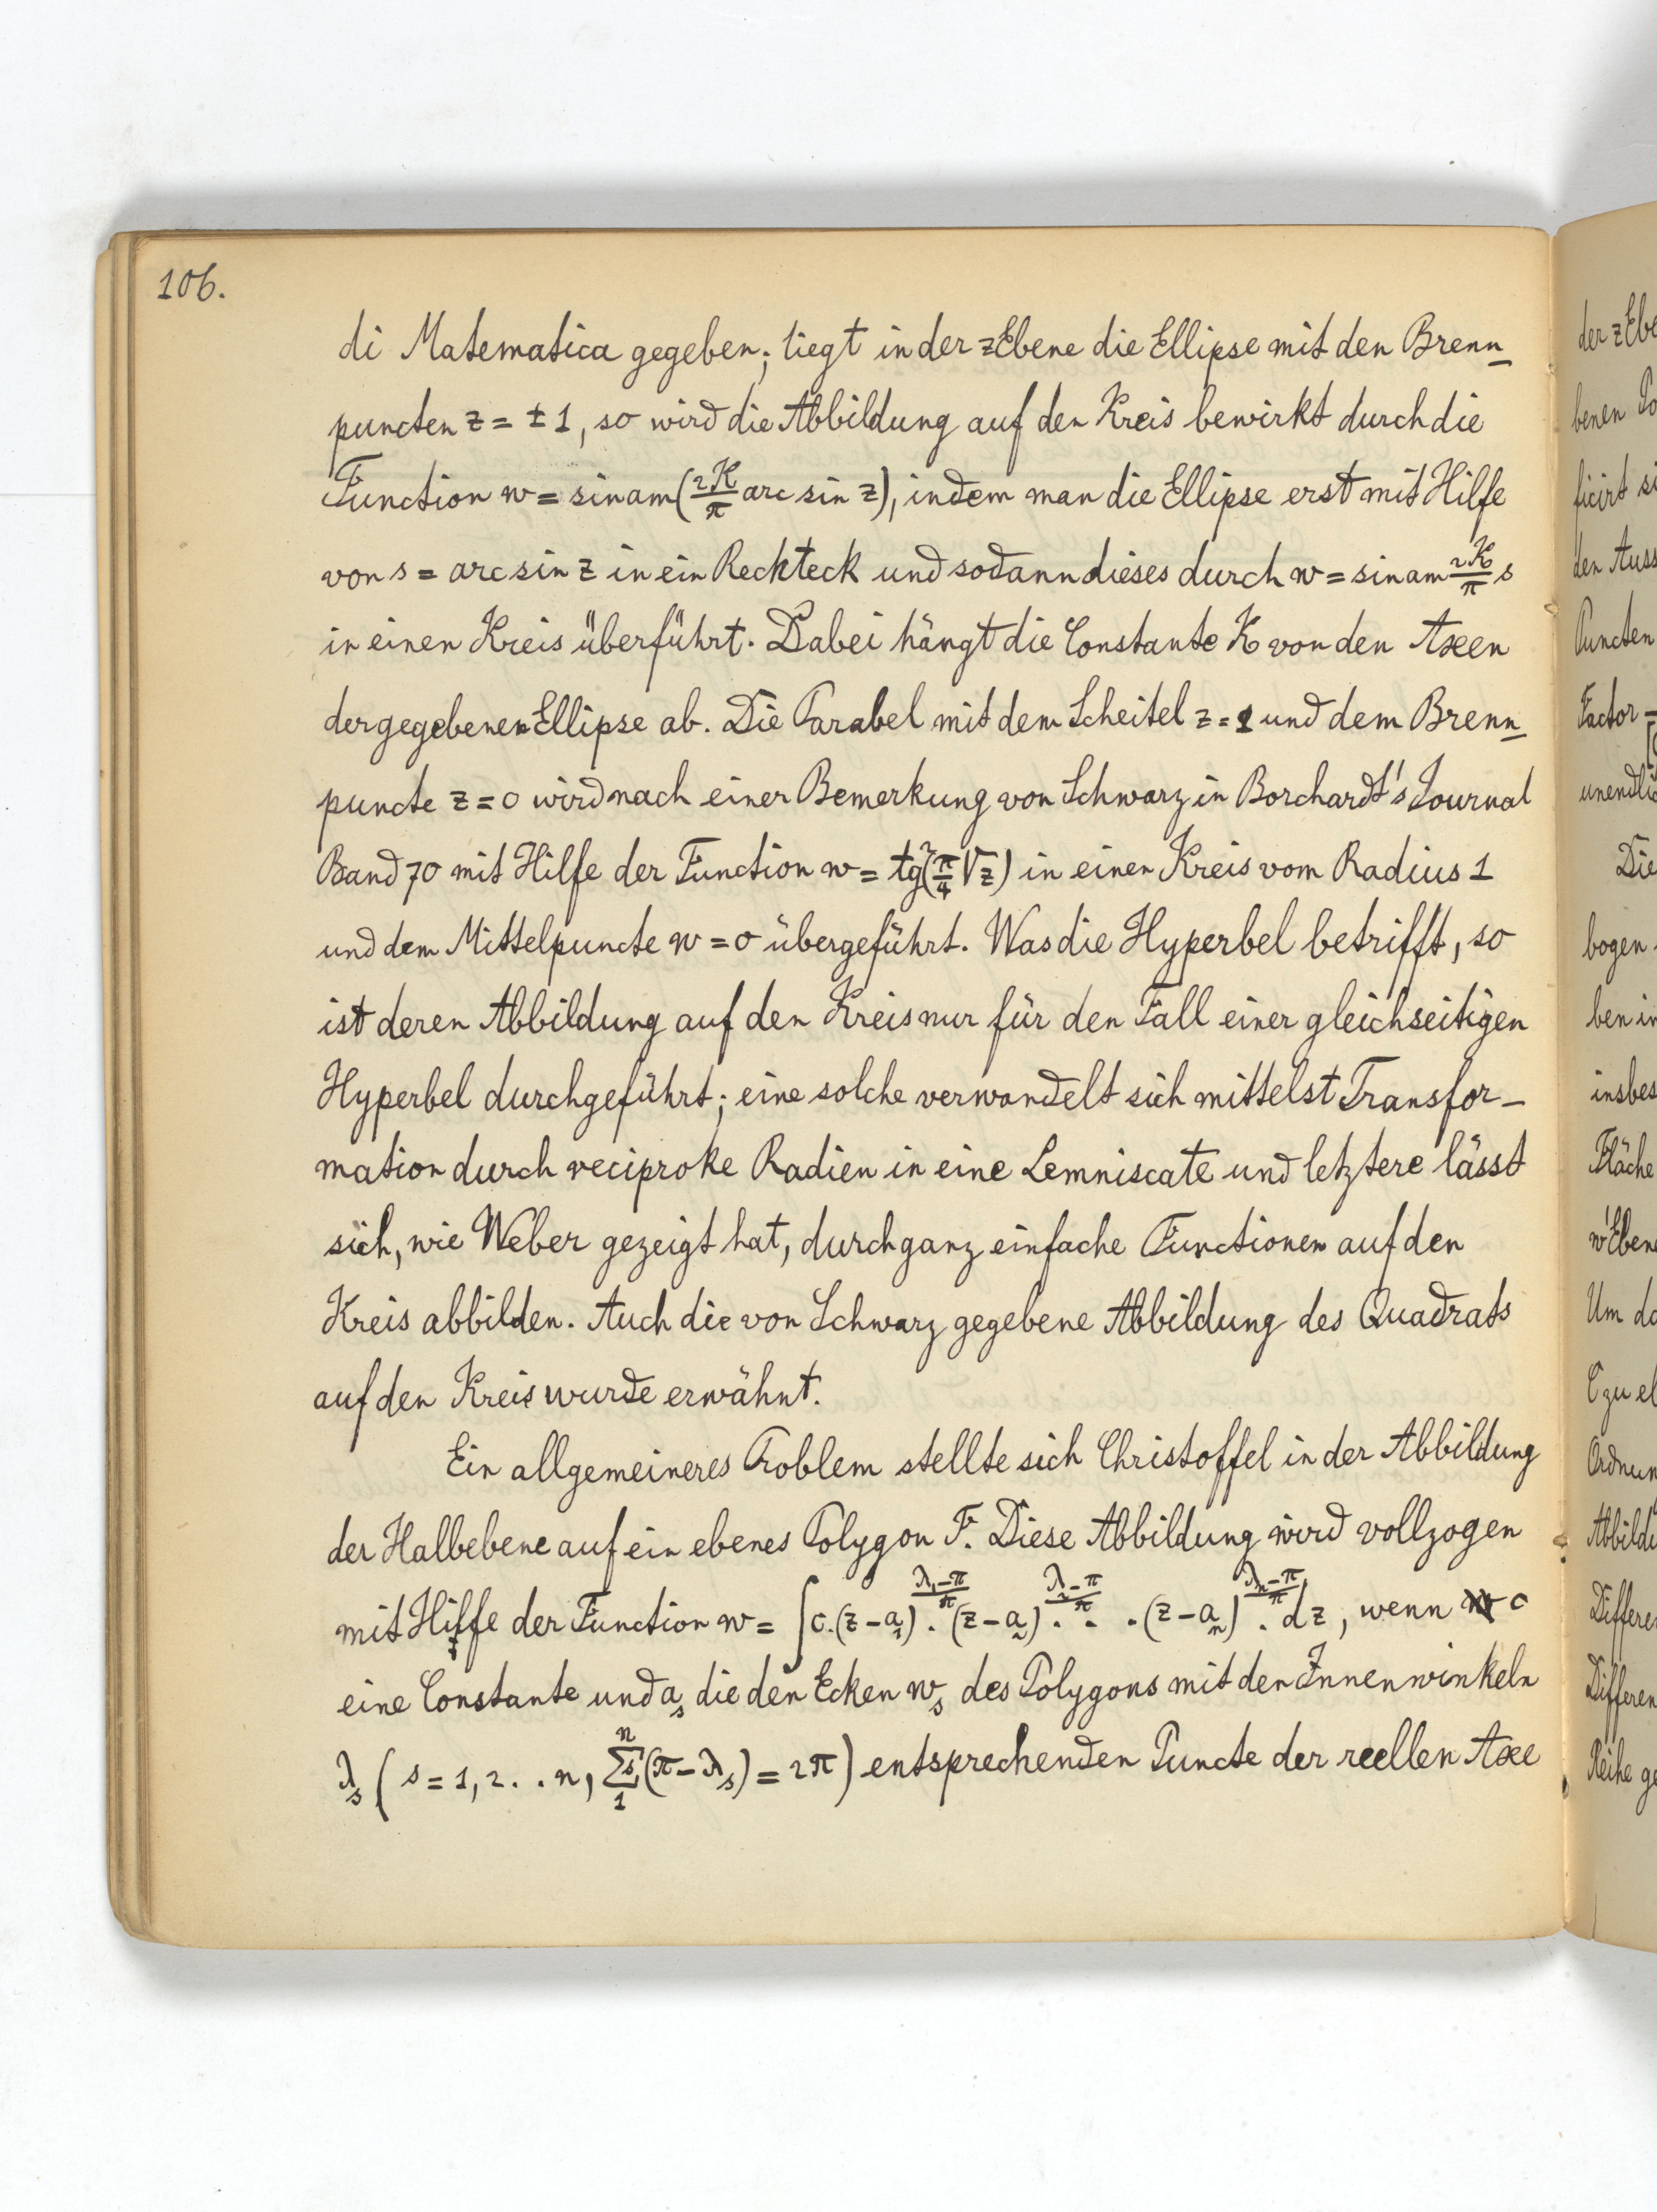 106.
di Matematica gegeben; liegt in der zEbene die Ellipse mit den Brenn_
puncten z = ± 1, so wird die Abbildung auf den Kreis bewirkt durch die
Function w = sinam(2K/π arc sin z), indem man die Ellipse erst mit Hilfe
von s = arc sin z in ein Reckteck und sodann dieses durch w = sinam 2K/π s
in einen Kreis überführt. Dabei hängt die Constante K von den Axen
der gegebenen Ellipse ab. Die Parabel mit dem Scheitel z = 1 und dem Brenn_
puncte z = 0 wird nach einer Bemerkung von Schwarz in Borchardt's Journal
Band 70 mit Hilfe der Function w = tg²(π/4 √z) in einen Kreis vom Radius 1
und dem Mittelpuncte w = 0 übergeführt. Was die Hyperbel betrifft, so
ist deren Abbildung auf den Kreis nur für den Fall einer gleichseitigen
Hyperbel durchgeführt; eine solche verwandelt sich mittelst Transfor-
mation durch reciproke Radien in eine Lemniscate und letztere lässt
sich, wie Weber gezeigt hat, durch ganz einfache Functionen auf den
Kreis abbilden. Auch die von Schwarz gegebene Abbildung des Quadrats
auf den Kreis wurde erwähnt.
Ein allgemeineres Problem stellte sich Christoffel in der Abbildung
der Halbebene auf ein ebenes Polygon F. Diese Abbildung wird vollzogen
mit Hilfe der Function w = ∫c.(z-a₁)^((λ₁-π)/π) . (z-a₂)^((λ₂-π)/π) . . . (z-aₙ)^((λₙ-π)/π) . dz, wenn c
eine Constante und aₛ die den Ecken wₛ des Polygons mit den Innenwinkeln
λₛ ( s = 1, 2 . . n, Σ₁ⁿ (π-λₛ) = 2π ) entsprechenden Puncte der reellen Axe
der zEbe
benen Po
ficirt si
den Auss
Puncten
Factor
unendlic
Die
bogen
ben in
insbes
Fläche
w'Ebene
Um da
C zu el
Ordnun
Abbildu
Differe
Differen
Reihe ge